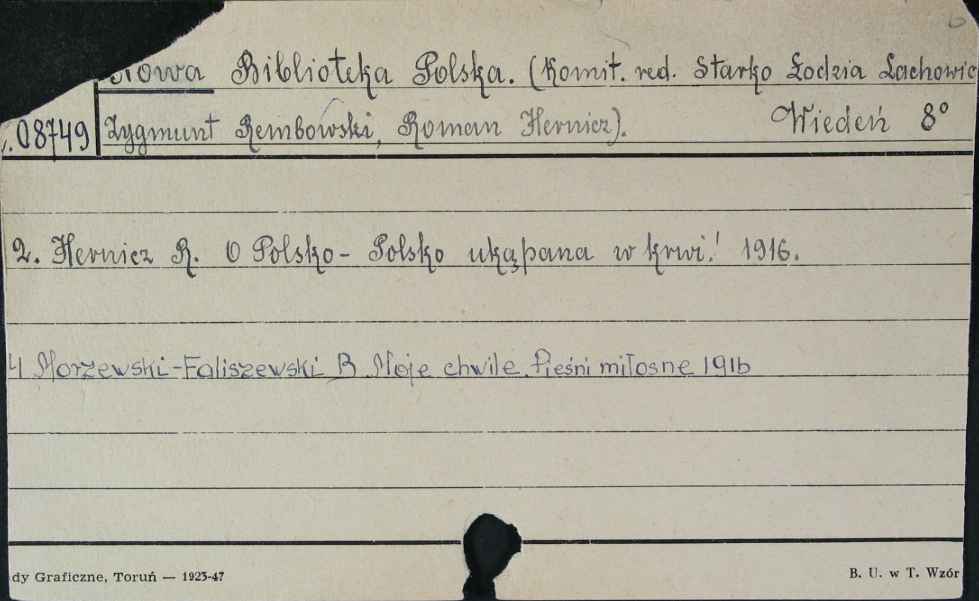 Nowa Biblioteka Polska. (Komit. red. Starko Łodzia Lachowic
08749 Zygmunt Rembowski, Roman Hernicz). Wiedeń 8°
2. Hernicz R. O Polsko - Polsko ukąpana w krwi! 1916.
4 Morzewski-Faliszewski B Moje chwile. Pieśni miłosne 1916
dy Graficzne, Toruń — 1923-47 B. U. w T. Wzór